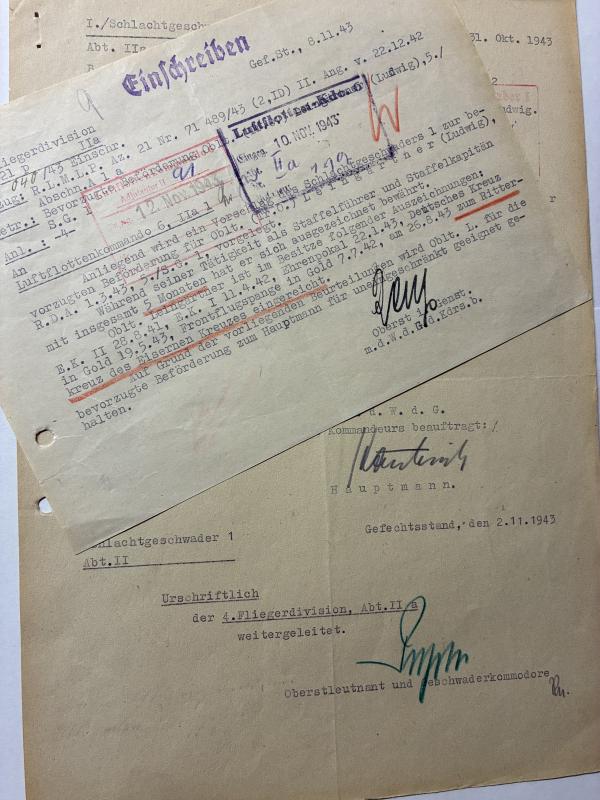 I./Schlachtgeschwa
Abt. IIa
31. Okt. 1943
Einschreiben
Gef.St., 8.11.43
liegerdivision
IIa
21 P
/43 Einschr.
zug: R.L.M.L.P. Az. 21 Nr. 71 489/43 (2,ID) II. Ang. v. 22.12.42
Abschn. 1 a
Betr.: Bevorzugte Beförderung Oblt.
(Ludwig), 5./
S.G. 1
Anl.: -4-
Luftflotten-Kdo. 6
10. NOV. 1943
IIa
12. Nov. 1943
An
Luftflottenkommando 6, IIa 1
Anliegend wird ein Vorschlag des Schlachtgeschwaders 1 zur be-
vorzugten Beförderung für Oblt. (Tr.O.) Leingärtner (Ludwig),
R.D.A. 1.3.43, 5./S.G. 1, vorgelegt.
Während seiner Tätigkeit als Staffelführer und Staffelkapitän
mit insgesamt 5 Monaten hat er sich ausgezeichnet bewährt.
Oblt. Leingärtner ist im Besitze folgender Auszeichnungen:
E.K. II 28.8.41, E.K. I 11.4.42, Ehrenpokal 22.1.43, Deutsches Kreuz
in Gold 19.5.43, Frontflugspange in Gold 7.7.42, am 26.8.43 zum Ritter-
kreuz des Eisernen Kreuzes eingereicht.
Auf Grund der vorliegenden Beurteilungen wird Oblt. L. für die
bevorzugte Beförderung zum Hauptmann für uneingeschränkt geeignet ge-
halten.
Oberst i.Genst.
m.d.W.d.G.d.Kdrs.b.
.d.W.d.G.
Kommandeurs beauftragt:/
Hauptmann.
Schlachtgeschwader 1
Abt.II
Gefechtsstand, den 2.11.1943
Urschriftlich
der 4.Fliegerdivision, Abt.II a
weitergeleitet.
Oberstleutnant und Geschwaderkommodore